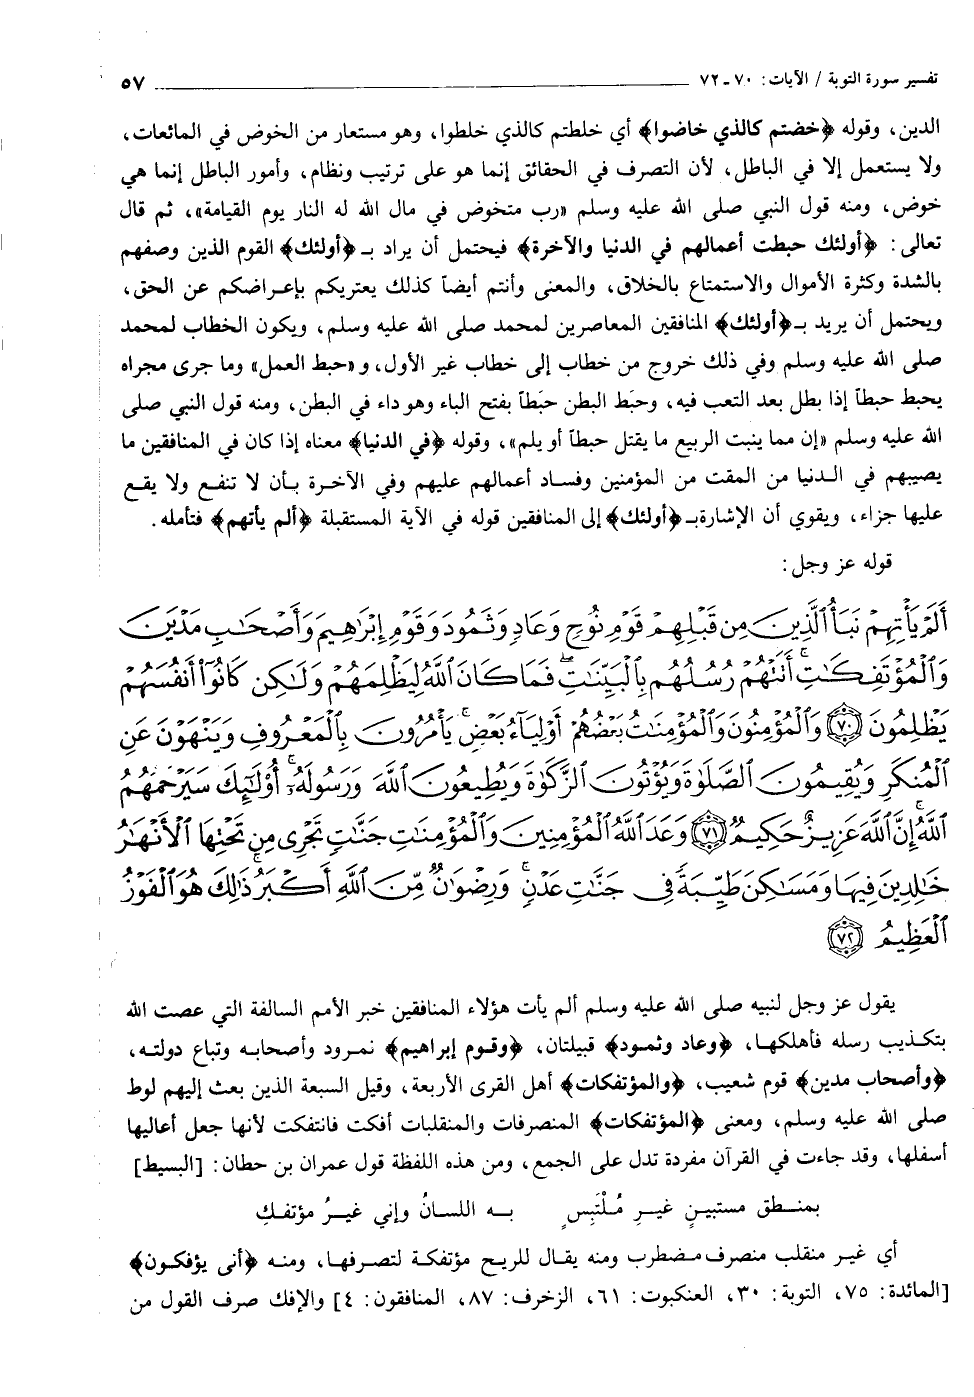 تفسير سورة التوبة / الآيات: ٧٠ - ٧٢ ٥٧
الدين، وقوله ﴿خضتم كالذي خاضوا﴾ أي خلطتم كالذي خلطوا، وهو مستعار من الخوض في المائعات،
ولا يستعمل إلا في الباطل، لأن التصرف في الحقائق إنما هو على ترتيب ونظام، وأمور الباطل إنما هي
خوض، ومنه قول النبي صلى الله عليه وسلم «رب متخوض في مال الله له النار يوم القيامة»، ثم قال
تعالى: ﴿أولئك حبطت أعمالهم في الدنيا والآخرة﴾ فيحتمل أن يراد بـ ﴿أولئك﴾ القوم الذين وصفهم
بالشدة وكثرة الأموال والاستمتاع بالخلاق، والمعنى وأنتم أيضاً كذلك يعتريكم بإعراضكم عن الحق،
ويحتمل أن يريد بـ ﴿أولئك﴾ المنافقين المعاصرين لمحمد صلى الله عليه وسلم، ويكون الخطاب لمحمد
صلى الله عليه وسلم وفي ذلك خروج من خطاب إلى خطاب غير الأول، و«حبط العمل» وما جرى مجراه
يحبط حبطاً إذا بطل بعد التعب فيه، وحبَط البطن حبَطاً بفتح الباء وهو داء في البطن، ومنه قول النبي صلى
الله عليه وسلم «إن مما ينبت الربيع ما يقتل حبطاً أو يلم»، وقوله ﴿في الدنيا﴾ معناه إذا كان في المنافقين ما
يصيبهم في الدنيا من المقت من المؤمنين وفساد أعمالهم عليهم وفي الآخرة بأن لا تنفع ولا يقع
عليها جزاء، ويقوي أن الإشارة بـ ﴿أولئك﴾ إلى المنافقين قوله في الآية المستقبلة ﴿ألم يأتهم﴾ فتأمله.
قوله عز وجل:
أَلَمْ يَأْتِهِمْ نَبَأُ ٱلَّذِينَ مِن قَبْلِهِمْ قَوْمِ نُوحٍ وَعَادٍ وَثَمُودَ وَقَوْمِ إِبْرَٰهِيمَ وَأَصْحَٰبِ مَدْيَنَ
وَٱلْمُؤْتَفِكَٰتِ ۚ أَتَتْهُمْ رُسُلُهُم بِٱلْبَيِّنَٰتِ ۖ فَمَا كَانَ ٱللَّهُ لِيَظْلِمَهُمْ وَلَٰكِن كَانُوٓا۟ أَنفُسَهُمْ
يَظْلِمُونَ ﴿٧٠﴾ وَٱلْمُؤْمِنُونَ وَٱلْمُؤْمِنَٰتُ بَعْضُهُمْ أَوْلِيَآءُ بَعْضٍ ۚ يَأْمُرُونَ بِٱلْمَعْرُوفِ وَيَنْهَوْنَ عَنِ
ٱلْمُنكَرِ وَيُقِيمُونَ ٱلصَّلَوٰةَ وَيُؤْتُونَ ٱلزَّكَوٰةَ وَيُطِيعُونَ ٱللَّهَ وَرَسُولَهُۥٓ ۚ أُو۟لَٰٓئِكَ سَيَرْحَمُهُمُ
ٱللَّهُ ۗ إِنَّ ٱللَّهَ عَزِيزٌ حَكِيمٌ ﴿٧١﴾ وَعَدَ ٱللَّهُ ٱلْمُؤْمِنِينَ وَٱلْمُؤْمِنَٰتِ جَنَّٰتٍ تَجْرِى مِن تَحْتِهَا ٱلْأَنْهَٰرُ
خَٰلِدِينَ فِيهَا وَمَسَٰكِنَ طَيِّبَةً فِى جَنَّٰتِ عَدْنٍ ۚ وَرِضْوَٰنٌ مِّنَ ٱللَّهِ أَكْبَرُ ۚ ذَٰلِكَ هُوَ ٱلْفَوْزُ
ٱلْعَظِيمُ ﴿٧٢﴾
يقول عز وجل لنبيه صلى الله عليه وسلم ألم يأت هؤلاء المنافقين خبر الأمم السالفة التي عصت الله
بتكذيب رسله فأهلكها، ﴿وعاد وثمود﴾ قبيلتان، ﴿وقوم إبراهيم﴾ نمرود وأصحابه وتباع دولته،
﴿وأصحاب مدين﴾ قوم شعيب، ﴿والمؤتفكات﴾ أهل القرى الأربعة، وقيل السبعة الذين بعث إليهم لوط
صلى الله عليه وسلم، ومعنى ﴿المؤتفكات﴾ المنصرفات والمنقلبات أفكت فانتفكت لأنها جعل أعاليها
أسفلها، وقد جاءت في القرآن مفردة تدل على الجمع، ومن هذه اللفظة قول عمران بن حطان: [البسيط]
بمنطق مستبينٍ غيرِ مُلْتَبِسٍ به اللسانُ وإني غيرُ مؤتفكِ
أي غير منقلب منصرف مضطرب ومنه يقال للريح مؤتفكة لتصرفها، ومنه ﴿أنى يؤفكون﴾
[المائدة: ٧٥، التوبة: ٣٠، العنكبوت: ٦١، الزخرف: ٨٧، المنافقون: ٤] والإفك صرف القول من